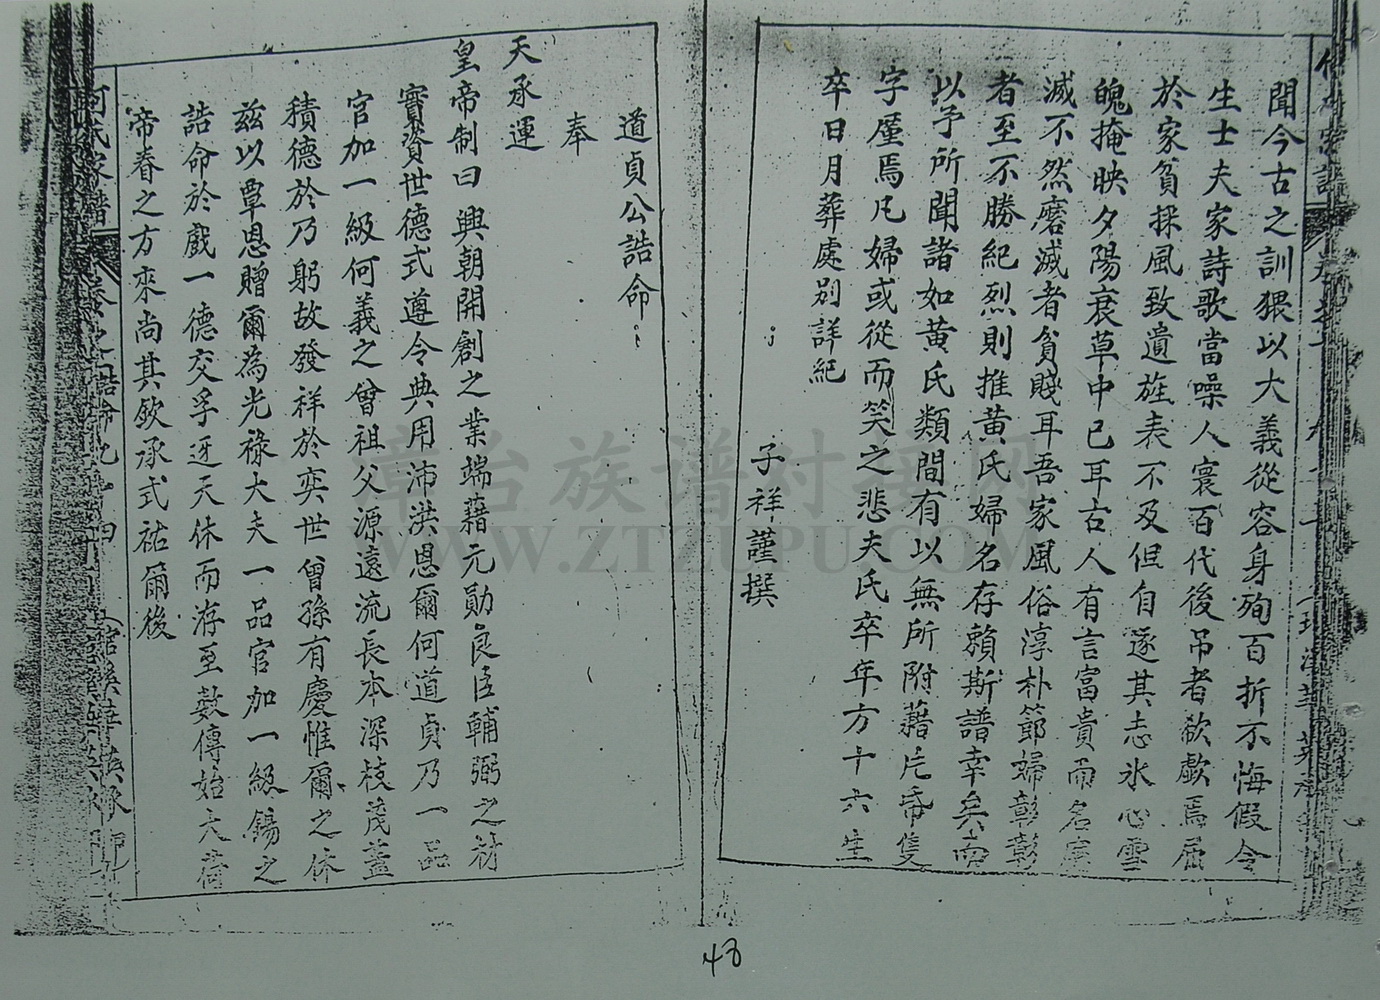 聞今古之訓猥以大義從容身殉百折不悔假令
生士夫家詩歌當噪人寰百代後吊者欷歔焉屈
於家貧採風致遺旌表不及但自遂其志氷心雪
魄掩映夕陽衰草中已耳古人有言富貴而名磨
滅不然磨滅者貧賤耳吾家風俗淳朴節婦彰彰
者至不勝紀烈則推黃氏婦名存賴斯譜幸矣而
以予所聞諸如黃氏類間有以無所附藉片帋隻
字壓焉凡婦或從而笑之悲夫氏卒年方十六生
卒日月葬處別詳紀
子祥謹撰
道貞公誥命
奉
天承運
皇帝制曰興朝開創之業端藉元勛良臣輔弼之材
寳賚世德式遵令典用沛洪恩爾何道貞乃一品
官加一級何義之曾祖父源遠流長本深枝茂蓋
積德於乃躬故發祥於奕世曾孫有慶惟爾之休
兹以覃恩贈爾為光祿大夫一品官加一級錫之
誥命於戲一德交孚迓天休而洊至數傳始大荷
帝眷之方來尚其欽承式祐爾後
何氏家譜 卷之 誥命 四
章台族谱对接网
WWW.ZTZUPU.COM
48